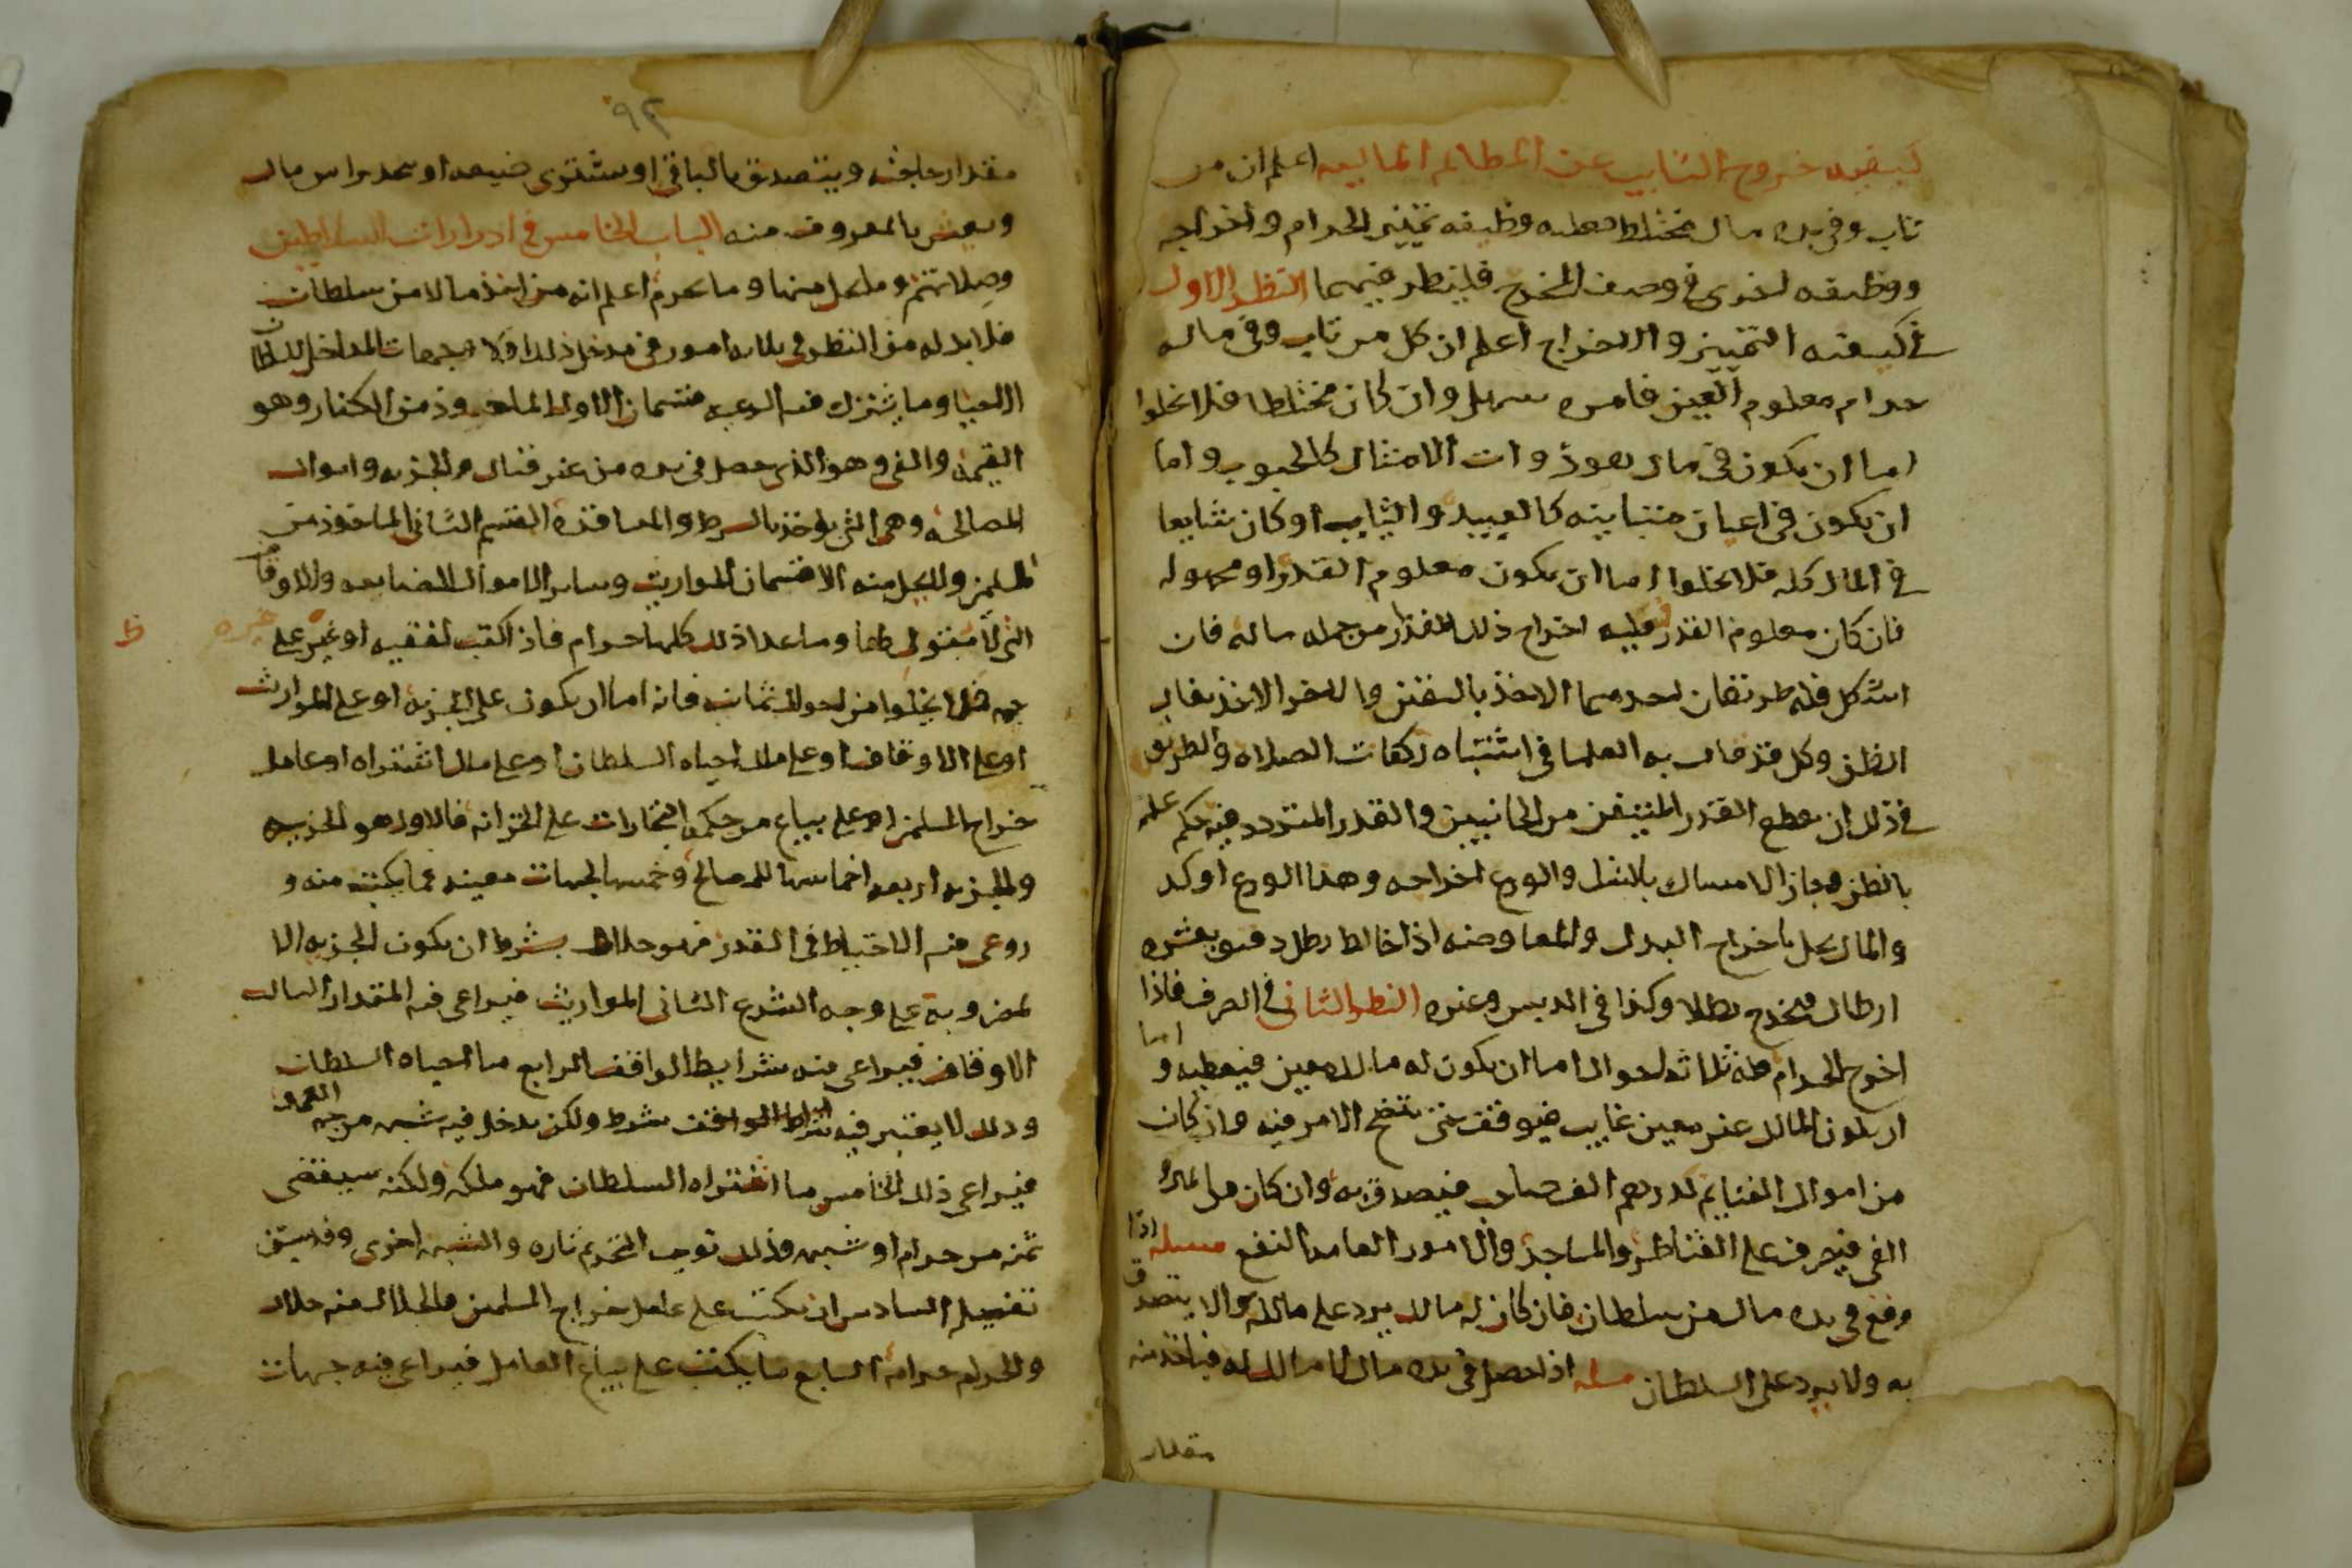 كيفيه خروج التايب عن المظالم الماليه اعلم ان من
تاب وفي يده مال مختلط فعليه وظيفه تمييز الحرام واخراجه
ووظيفه اخرى في وصف المخرج فلينظر فيهما النظر الاول
في كيفيه التمييز والاخراج اعلم ان كل من تاب وفي ماله
حرام معلوم العين فامره سهل وان كان مختلطا فلا يخلوا
اما ان يكون في مال هو ذوات الامثال كالحبوب واما
ان يكون في اعيان متباينه كالعبيد والثياب او كان شايعا
في المال كله فلا يخلوا اما ان يكون معلوم القدر او مجهوله
فان كان معلوم القدر فعليه اخراج ذلك المقدار من جمله ماله فان
اشكل فله طريقان احدهما الاخذ باليقين والاخر الاخذ بغالب
الظن وكل قد قال به العلما في اشتباه ركعات الصلاه والطريق
في ذلك ان يقطع القدر المتيقن من الجانبين والقدر المتردد فيه حكم عليه
بالظن وجاز الامساك بلا شك والورع اخراجه وهذا الورع اوكد
والمال يحل باخراج البدل والمعاوضه اذا خالط رطل دقيق بعشره
ارطال فيخرج رطلا وكذا في الدبس وغيره النظر الثاني في الصرف فاذا
اخرج الحرام فله ثلاثه احوال اما ان يكون له مالك معين فيعطيه و اما
ان يكون المالك غير معين غايب فيوقف حتى يتضح الامر فيه وان كان
من اموال الغنايم لدرهم الف فيصدق به وان كان من مال
الفي فيصرف على القناطر والمساجد والامور العامه النفع مسله اذا
وقع في يده مال من سلطان فان كان له مالك يرد على مالكه والا يتصدق
به ولا يرد على السلطان مسله اذا حصل في يده مال لا مالك له فياخذ منه
مقدار
٩٢
مقدار حاجته ويتصدق بالباقي او يشتري ضيعه او يتخذ راس مال
ويعيش بالمعروف منه الباب الخامس في ادرارات السلاطين
وصلاتهم وما يحل منها وما يحرم اعلم انه من اخذ مالا من سلطان
فلا بد له من النظر في ثلاثه امور في مدخل ذلك اولا وجهات المداخل للسلطان
الاحيا وما يشترك فيه الرعيه قسمان الاول الماخوذ من الكفار وهو
الغنيمه والفي وهو الذي حصل في يده من غير قتال والجزيه واموال
المصالحه وهي التي يؤخذ بالشرط والمعاقده القسم الثاني الماخوذ من
المسلمين ولا يحل منه الا قسمان المواريث وساير الاموال الضايعه والاوقاف
التي لا متولي لها وما عدا ذلك كلها حرام فاذا كتب لفقيه او غيره على
جهه فلا يخلوا من احوال ثمان فانه اما ان يكون على الجزيه او على المواريث
او على الاوقاف او على ملك احياه السلطان او على ملك اشتراه او عامل
خراج المسلمين او على بياع من حكم التجارات على الخزانه فالاول هو الجزيه
والجزيه اربعه اخماسها للمصالح وخمسها لجهات معينه فما يكتب منه و
روعي فيه الاحتياط في القدر فهو حلال بشرط ان يكون الجزيه الا
مضروبه على وجه الشرع الثاني المواريث فيراعي فيه المقدار الثالث
الاوقاف فيراعي فيه شرايط الواقف الرابع ما احياه السلطان
وذلك لا يعتبر فيه شرايط الواقف شرط ولكن يدخل فيه شبهه من جهه العمله
فيراعي ذلك الخامس ما اشتراه السلطان فهو ملكه ولكنه سيقضي
ثمنه من حرام او شبهه وذلك توجب التحريم تاره والشبهه اخرى وقد سبق
تفصيله السادس ان يكتب على عامل خراج المسلمين والحلال منه حلال
والحرام حرام السابع ما يكتب على بياع العامل فيراعي فيه جهات
ظ